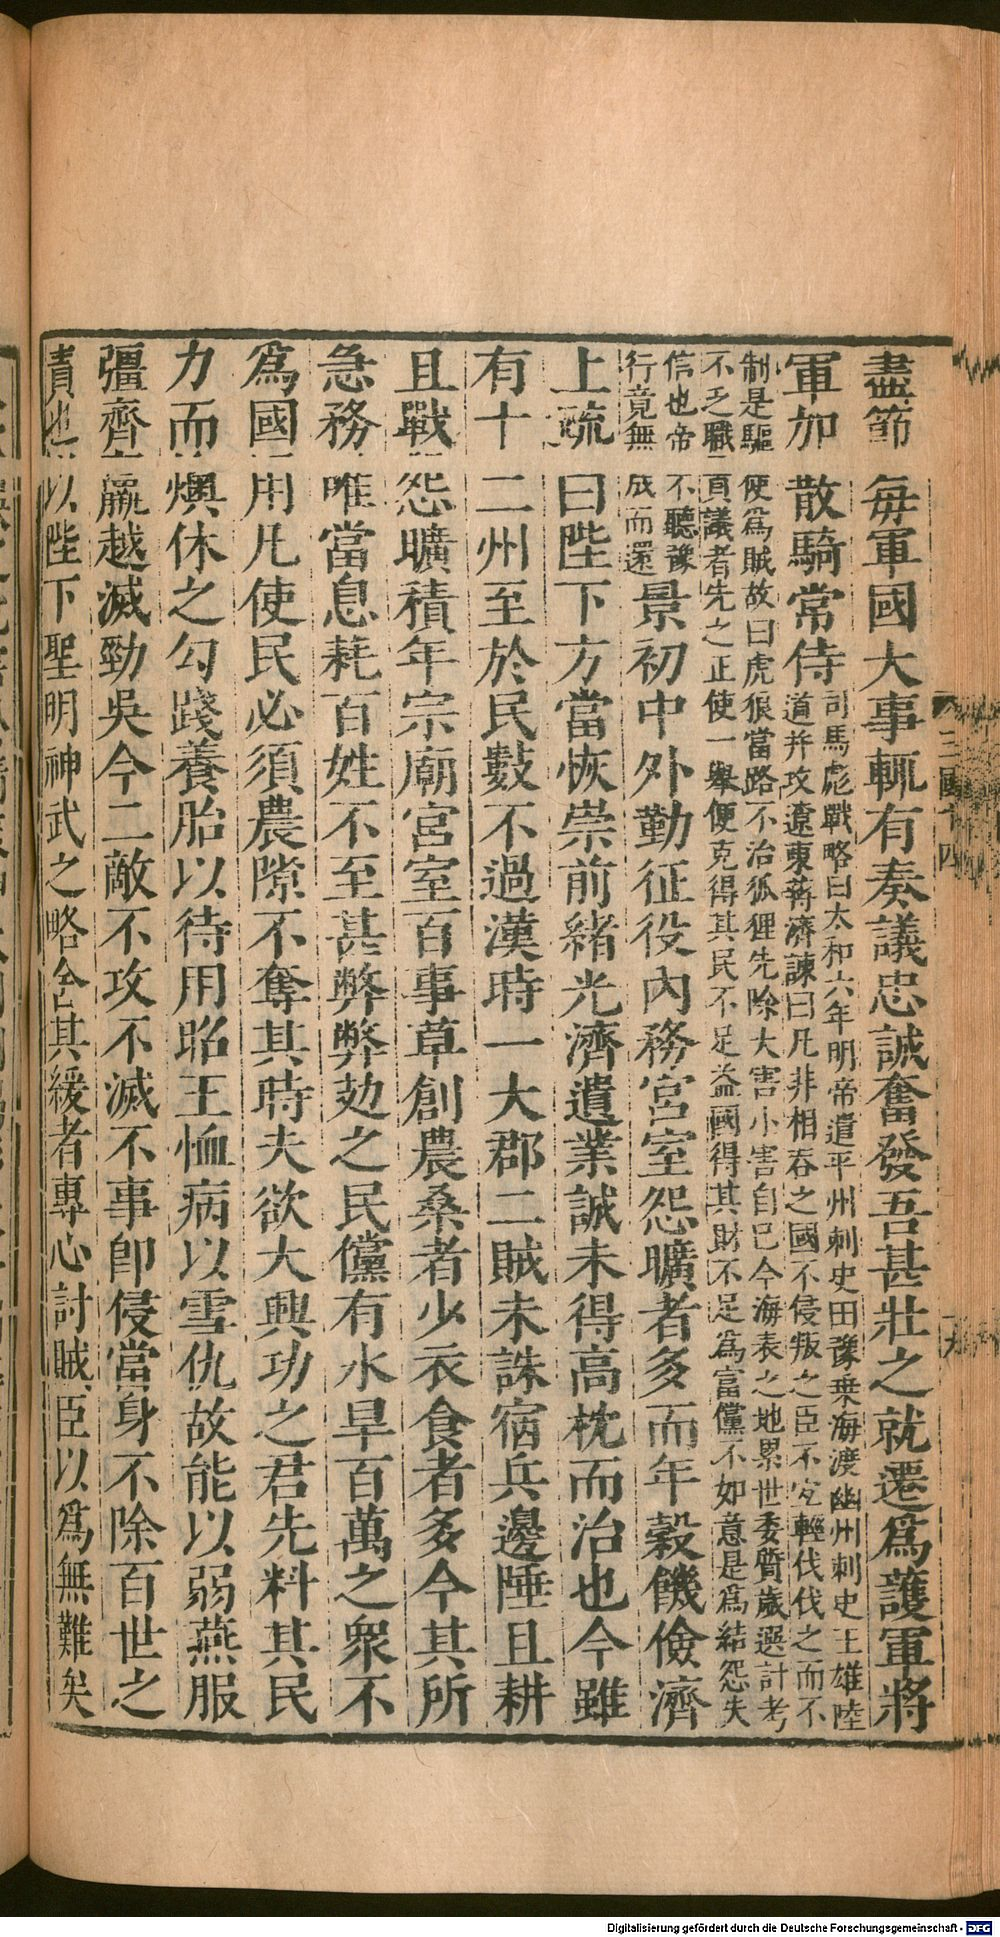 盡節每軍國大事輒有奏議忠誠奮發吾甚壯之就遷爲護軍將
軍加散騎常侍
司馬彪戰略曰太和六年明帝遣平州刺史田豫乗海渡幽州刺史王雄陸
道并攻遼東蔣濟諫曰凡非相吞之國不侵叛之臣不宜輕伐伐之而不
制是驅使爲賊故曰虎狼當路不治狐狸先除大害小害自已今海表之地累世委質歲選計考
不乏職貢議者先之正使一舉便克得其民不足益國得其財不足爲富儻不如意是爲結怨失
信也帝不聽豫
行竟無成而還
景初中外勤征役內務宮室怨曠者多而年穀饑儉濟
上疏曰陛下方當恢崇前緒光濟遺業誠未得高枕而治也今雖
有十二州至於民數不過漢時一大郡二賊未誅宿兵邊陲且耕
且戰怨曠積年宗廟宮室百事草創農桑者少衣食者多今其所
急務唯當息耗百姓不至甚弊弊攰之民儻有水旱百萬之衆不
爲國用凡使民必須農隙不奪其時夫欲大興功之君先料其民
力而燠休之勾踐養胎以待用昭王恤病以雪仇故能以弱燕服
彊齊羸越滅勁吳今二敵不攻不滅不事即侵當身不除百世之
責也以陛下聖明神武之略舍其緩者專心討賊臣以爲無難矣
三國十四
十九
Digitalisierung gefördert durch die Deutsche Forschungsgemeinschaft - DFG